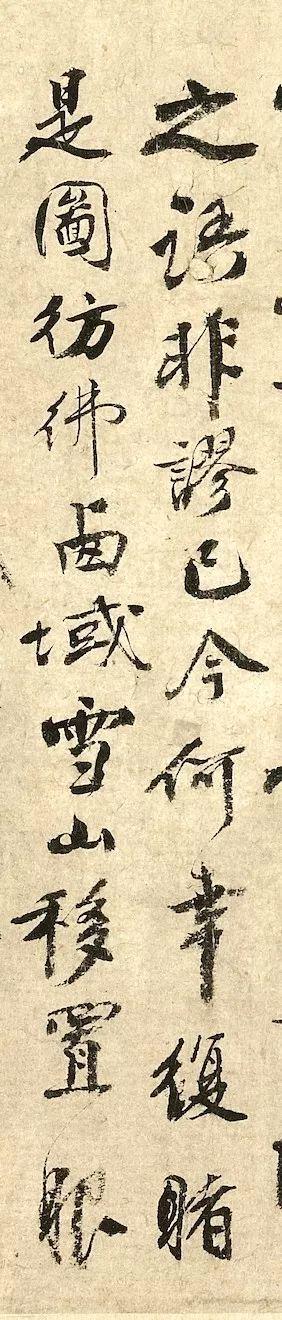 之語非謬已今何幸復睹
是圖彷彿西域雪山移置眼